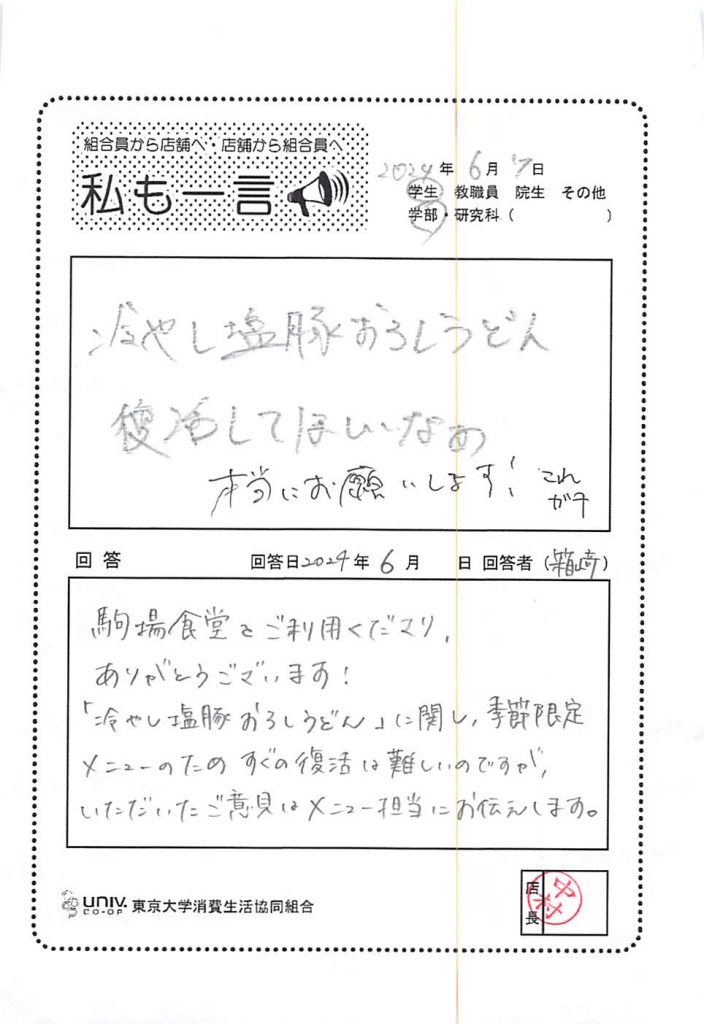 組合員から店舗へ・店舗から組合員へ
私も一言
2024年 6月 17日
学生 教職員 院生 その他
学部・研究科（ ）
冷やし塩豚おろしうどん
復活してほしいなあ
本当にお願いします！ これ
ガチ
回答 回答日2024年 6月 日 回答者（箱崎）
駒場食堂をご利用くださり、
ありがとうございます！
「冷やし塩豚おろしうどん」に関し、季節限定
メニューのため すぐの復活は難しいのですが、
いただいたご意見はメニュー担当にお伝えします。
UNIV. CO-OP 東京大学消費生活協同組合
店長 中村